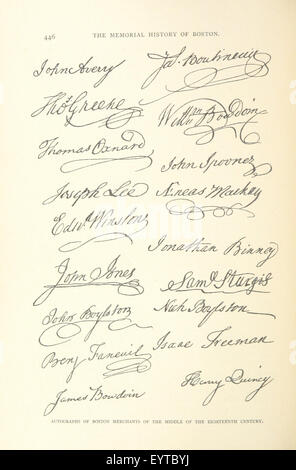 446 THE MEMORIAL HISTORY OF BOSTON.
John Avery
Jas. Boutineau
Thos. Greene
Willm Bowdoin
Thomas Oxnard
John Spooner
Joseph Lee
Æneas Mackay
Edwd Winslow
Jonathan Binney
John Jones
Saml Sturgis
John Boylston
Nich Boylston
Benj Faneuil
Isaac Freeman
James Bowdoin
Henry Quincy
AUTOGRAPHS OF BOSTON MERCHANTS OF THE MIDDLE OF THE EIGHTEENTH CENTURY.
alamy stock photo
EYTBYJ
www.alamy.com